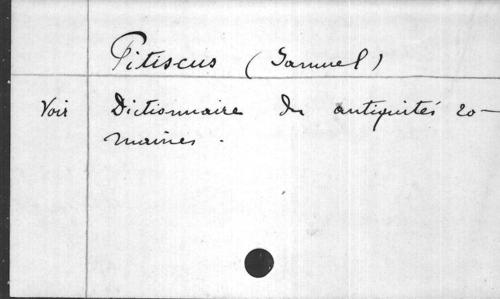 Pitiscus (Samuel)
Voir Dictionnaire des antiquités ro-
maines.